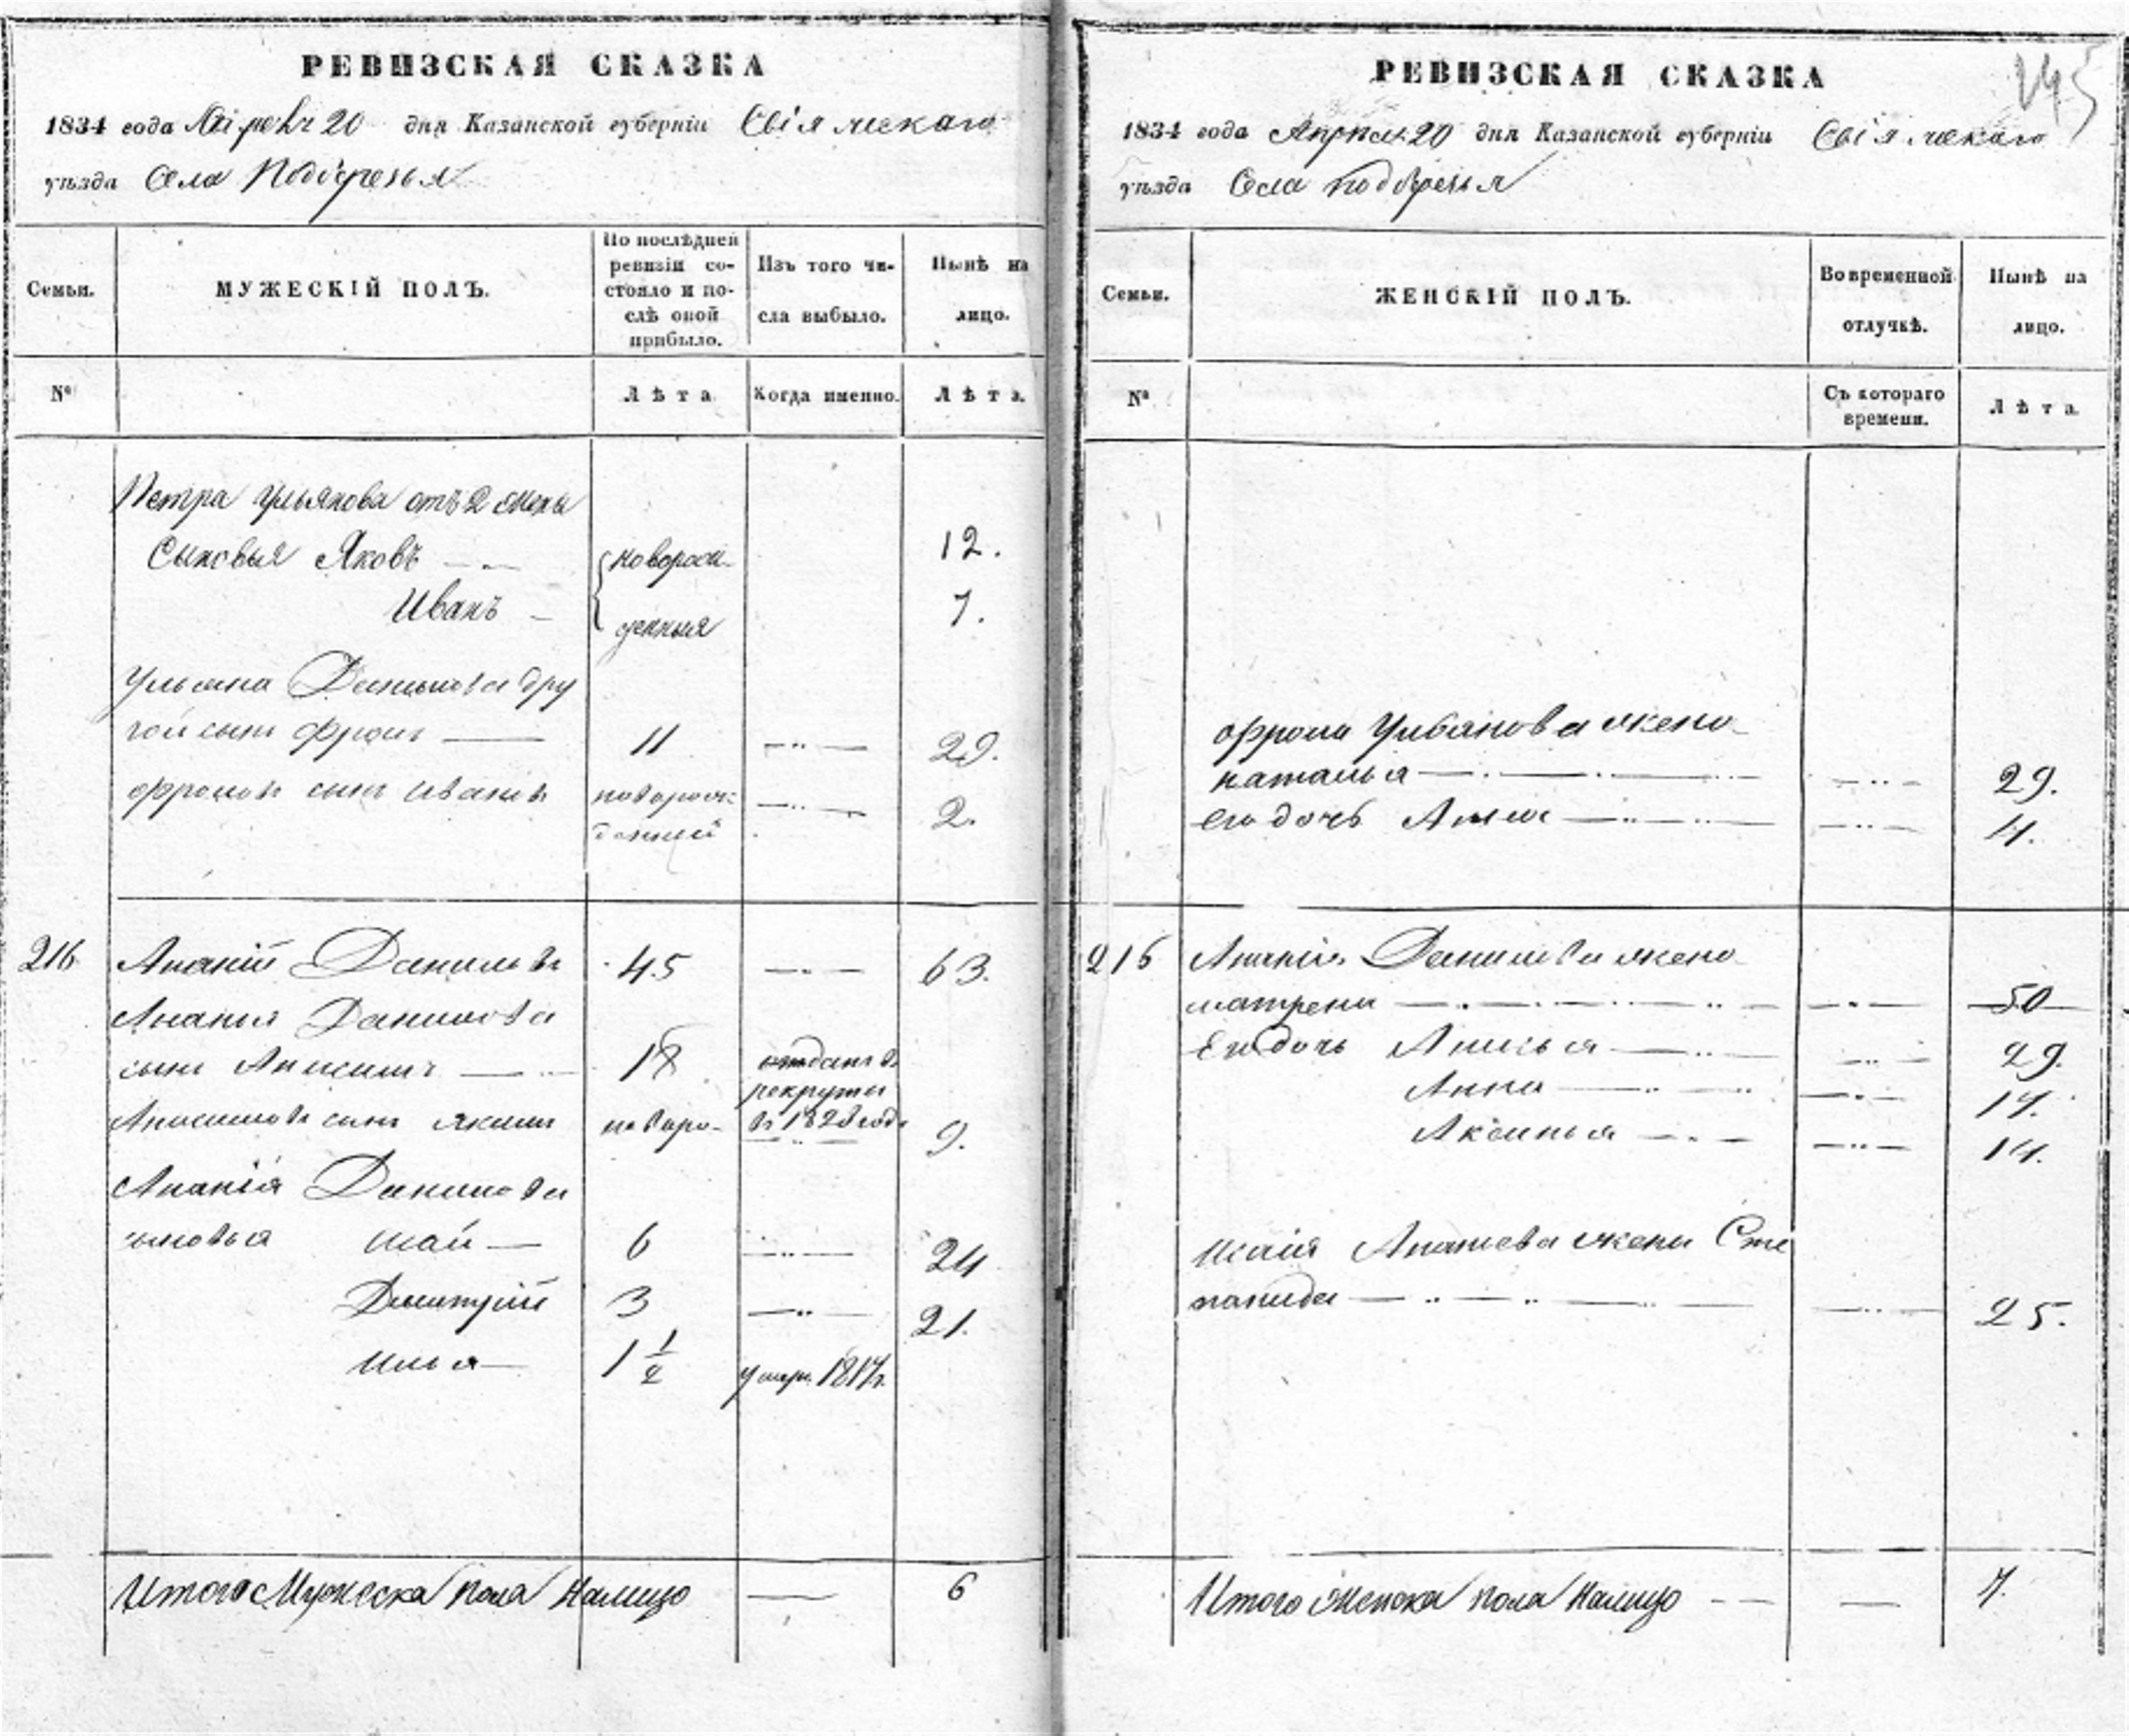 РЕВИЗСКАЯ СКАЗКА
1834 года Апреля 20 дня Казанской губерніи Свіяжскаго
уѣзда Села Подберезья
Семьи.
МУЖЕСКІЙ ПОЛЪ.
По послѣдней
ревизіи со-
стояло и по-
слѣ оной
прибыло.
Изъ того чи-
сла выбыло.
Нынѣ на
лицо.
№
Лѣта
Когда именно.
Лѣта.
Петра Ульянова отъ 2 жены
Сыновья Яковъ
новорож-
12.
Иванъ
денныя
7.
Ульяна Данилова дру
гой сынъ Фролъ 11 29.
Фроловъ сынъ Иванъ новорож- 2.
денный
216 Ананій Даниловъ 45 63.
Ананья Данилова
сынъ Анисимъ 18 отданъ в
рекруты
Анисимовъ сынъ Якимъ новоро- въ 1828 году 9.
Ананія Данилова
сыновья Исай 6 24
Дмитрій 3 21.
Илья 1 1/2 умеръ 1817 г.
Итого Мужеска пола Налицо 6
145
РЕВИЗСКАЯ СКАЗКА
1834 года Апреля 20 дня Казанской губерніи Свіяжскаго
уѣзда Села Подберезья
Семьи.
ЖЕНСКІЙ ПОЛЪ.
Во временной
отлучкѣ.
Нынѣ на
лицо.
№
Съ котораго
времени.
Лѣта.
Фрола Ульянова жена
Наталья 29.
его дочь Анна 4.
216 Ананія Данилова жена
Матрена 50
Его дочь Анисья 29.
Анна 17.
Аксинья 14.
Исаія Ананьева жена Сте
панида 25.
Итого Женска пола Налицо 7.